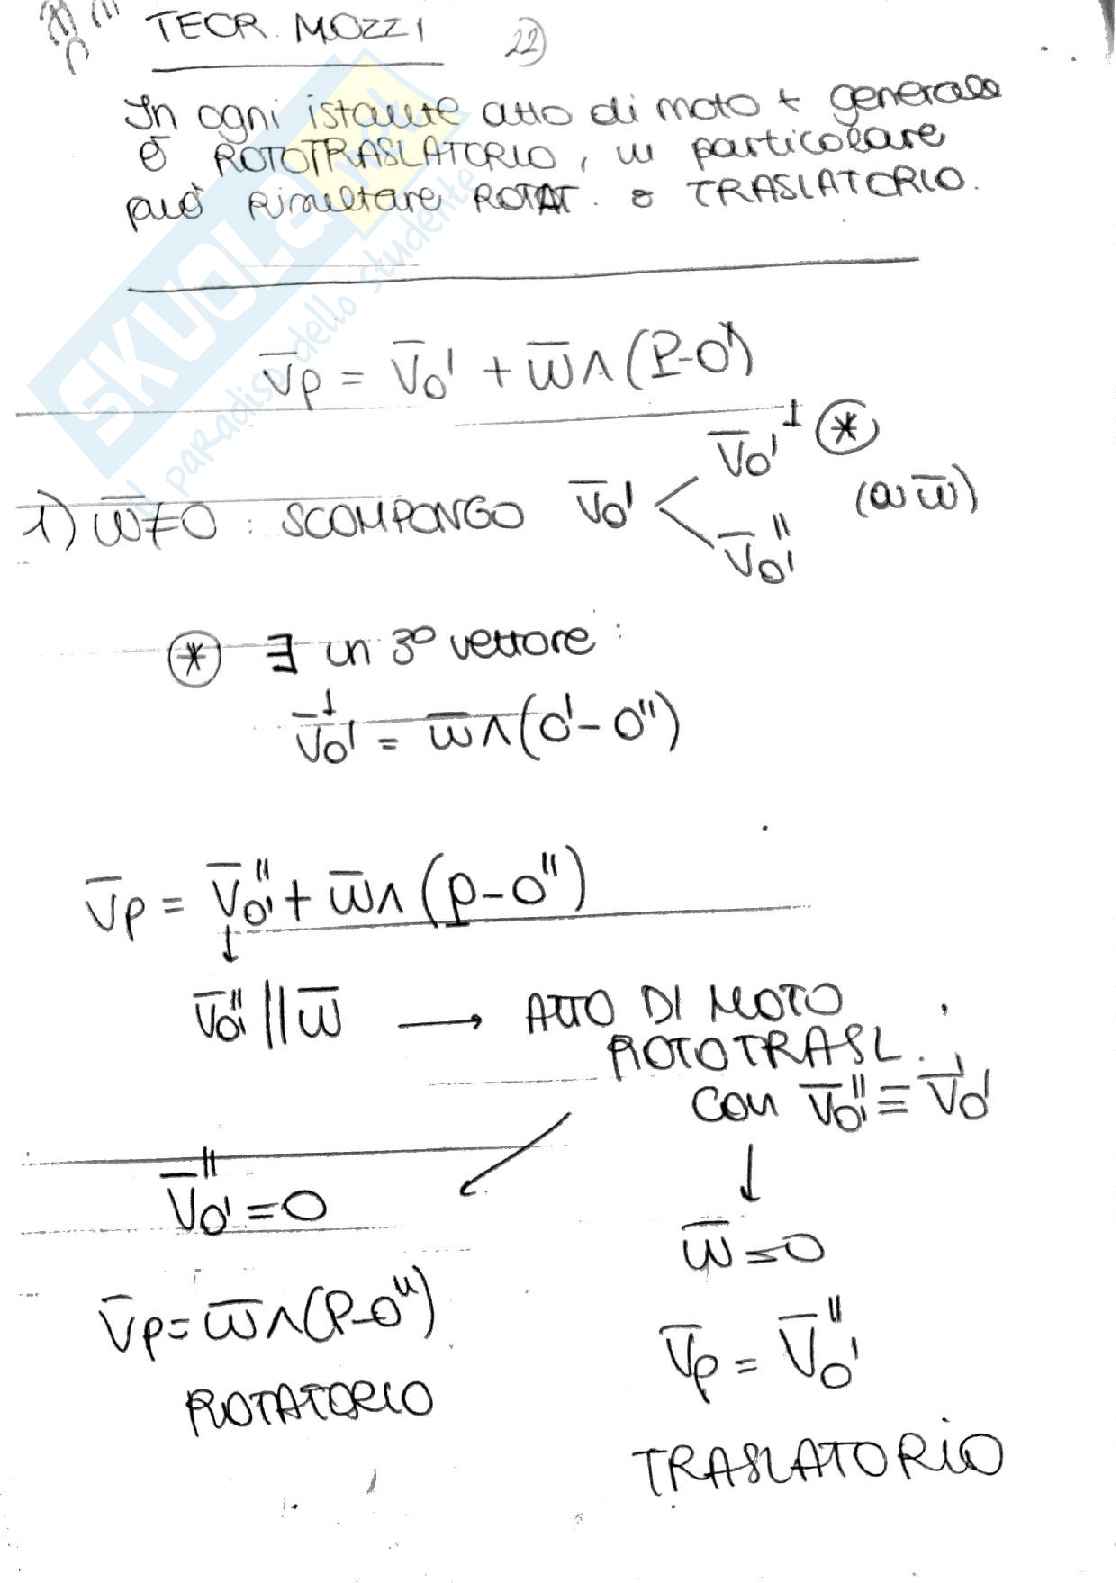 TEOR. MOZZI
22)
In ogni istante atto di moto + generale
è ROTOTRASLATORIO, in particolare
può risultare ROTAT. o TRASLATORIO.
SKUOLA
il paradiso dello studente
V̅p = V̅o' + ω̅∧(P-O')
1) ω̅≠0 : SCOMPONGO V̅o' < V̅o'⊥ (*)
V̅o'" (a ω̅)
(*) ∃ un 3° vettore:
V̅o'⊥ = ω̅∧(O'-O")
V̅p = V̅o'" + ω̅∧(P-O")
↓
V̅o'" || ω̅ → ATTO DI MOTO
ROTOTRASL.
con V̅o'" ≡ V̅o'
V̅o'" = 0
↓
ω̅ = 0
V̅p = ω̅∧(P-O")
V̅p = V̅o'"
ROTATORIO
TRASLATORIO